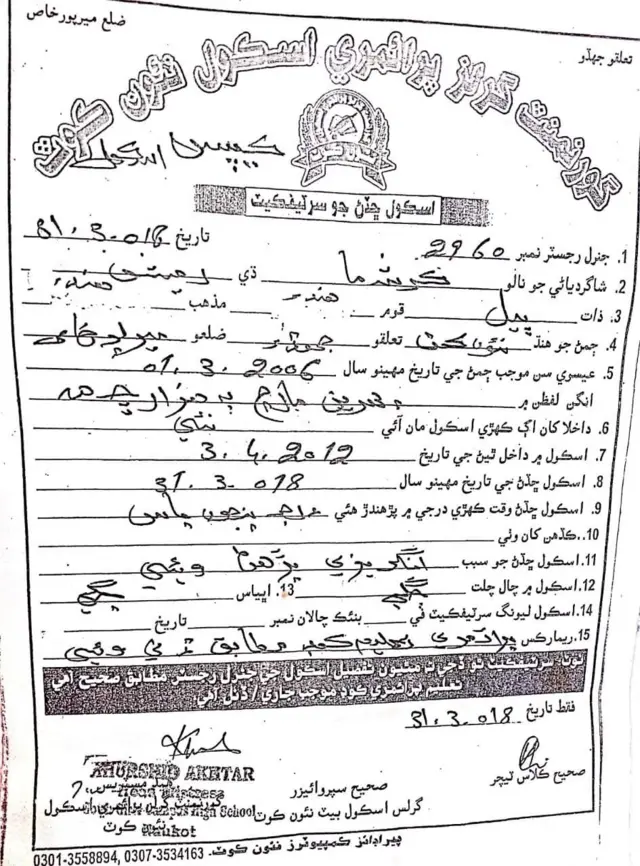 ضلع ميرپور خاص
تعلقو جھڏو
گورنمينٽ گرلز پرائمري اسڪول نئون ڪوٽ
ڪيمپس اسڪول
اسڪول ڇڏڻ جو سرٽيفڪيٽ
1. جنرل رجسٽر نمبر 2960 تاريخ 31.3.018
2. شاگردياڻي جو نالو ڪرشما ڌي
3. ذات ڀيل قوم هندو مذهب هندو
4. ڄمڻ جو هنڌ نئون ڪوٽ تعلقو جھڏو ضلعو ميرپور خاص
5. عيسوي سن موجب ڄمڻ جي تاريخ مهينو سال 01.3.2006
انگن لفظن ۾ پهرين مارچ ٻه هزار ڇهه
6. داخلا کان اڳ ڪهڙي اسڪول مان آئي نئين
7. اسڪول ۾ داخل ٿيڻ جي تاريخ 3.4.2012
8. اسڪول ڇڏڻ جي تاريخ مهينو سال 31.3.018
9. اسڪول ڇڏڻ وقت ڪهڙي درجي ۾ پڙهندڙ هئي درجه پنجون پاس
10. ڪڏهن کان وٺي
11. اسڪول ڇڏڻ جو سبب انگريزي پڙهڻ ويئي
12. اسڪول ۾ چال چلت چڱي 13. اڀياس چڱي
14. اسڪول ليونگ سرٽيفڪيٽ في بئنڪ چالان نمبر تاريخ
15. ريمارڪس پرائمري تعليم مطابق ويئي
نوٽ: سرٽيفڪيٽ مٿيون تفصيل اسڪول جي جنرل رجسٽر مطابق صحيح آهي
تعليم پرائمري ڪوڊ موجب جاري / ڏنل آهي
فقط تاريخ 31.3.018
صحيح ڪلاس ٽيچر
صحيح سپروائيزر
گرلس اسڪول بيٽ نئون ڪوٽ
KHURSHID AKHTAR
Head Mistress
Campus High School
Naukot
هيڊ مسٽريس
گورنمينٽ گرلز پرائمري اسڪول
نئون ڪوٽ
پيراڊائز ڪمپيوٽرز نئون ڪوٽ. 0301-3558894, 0307-3534163